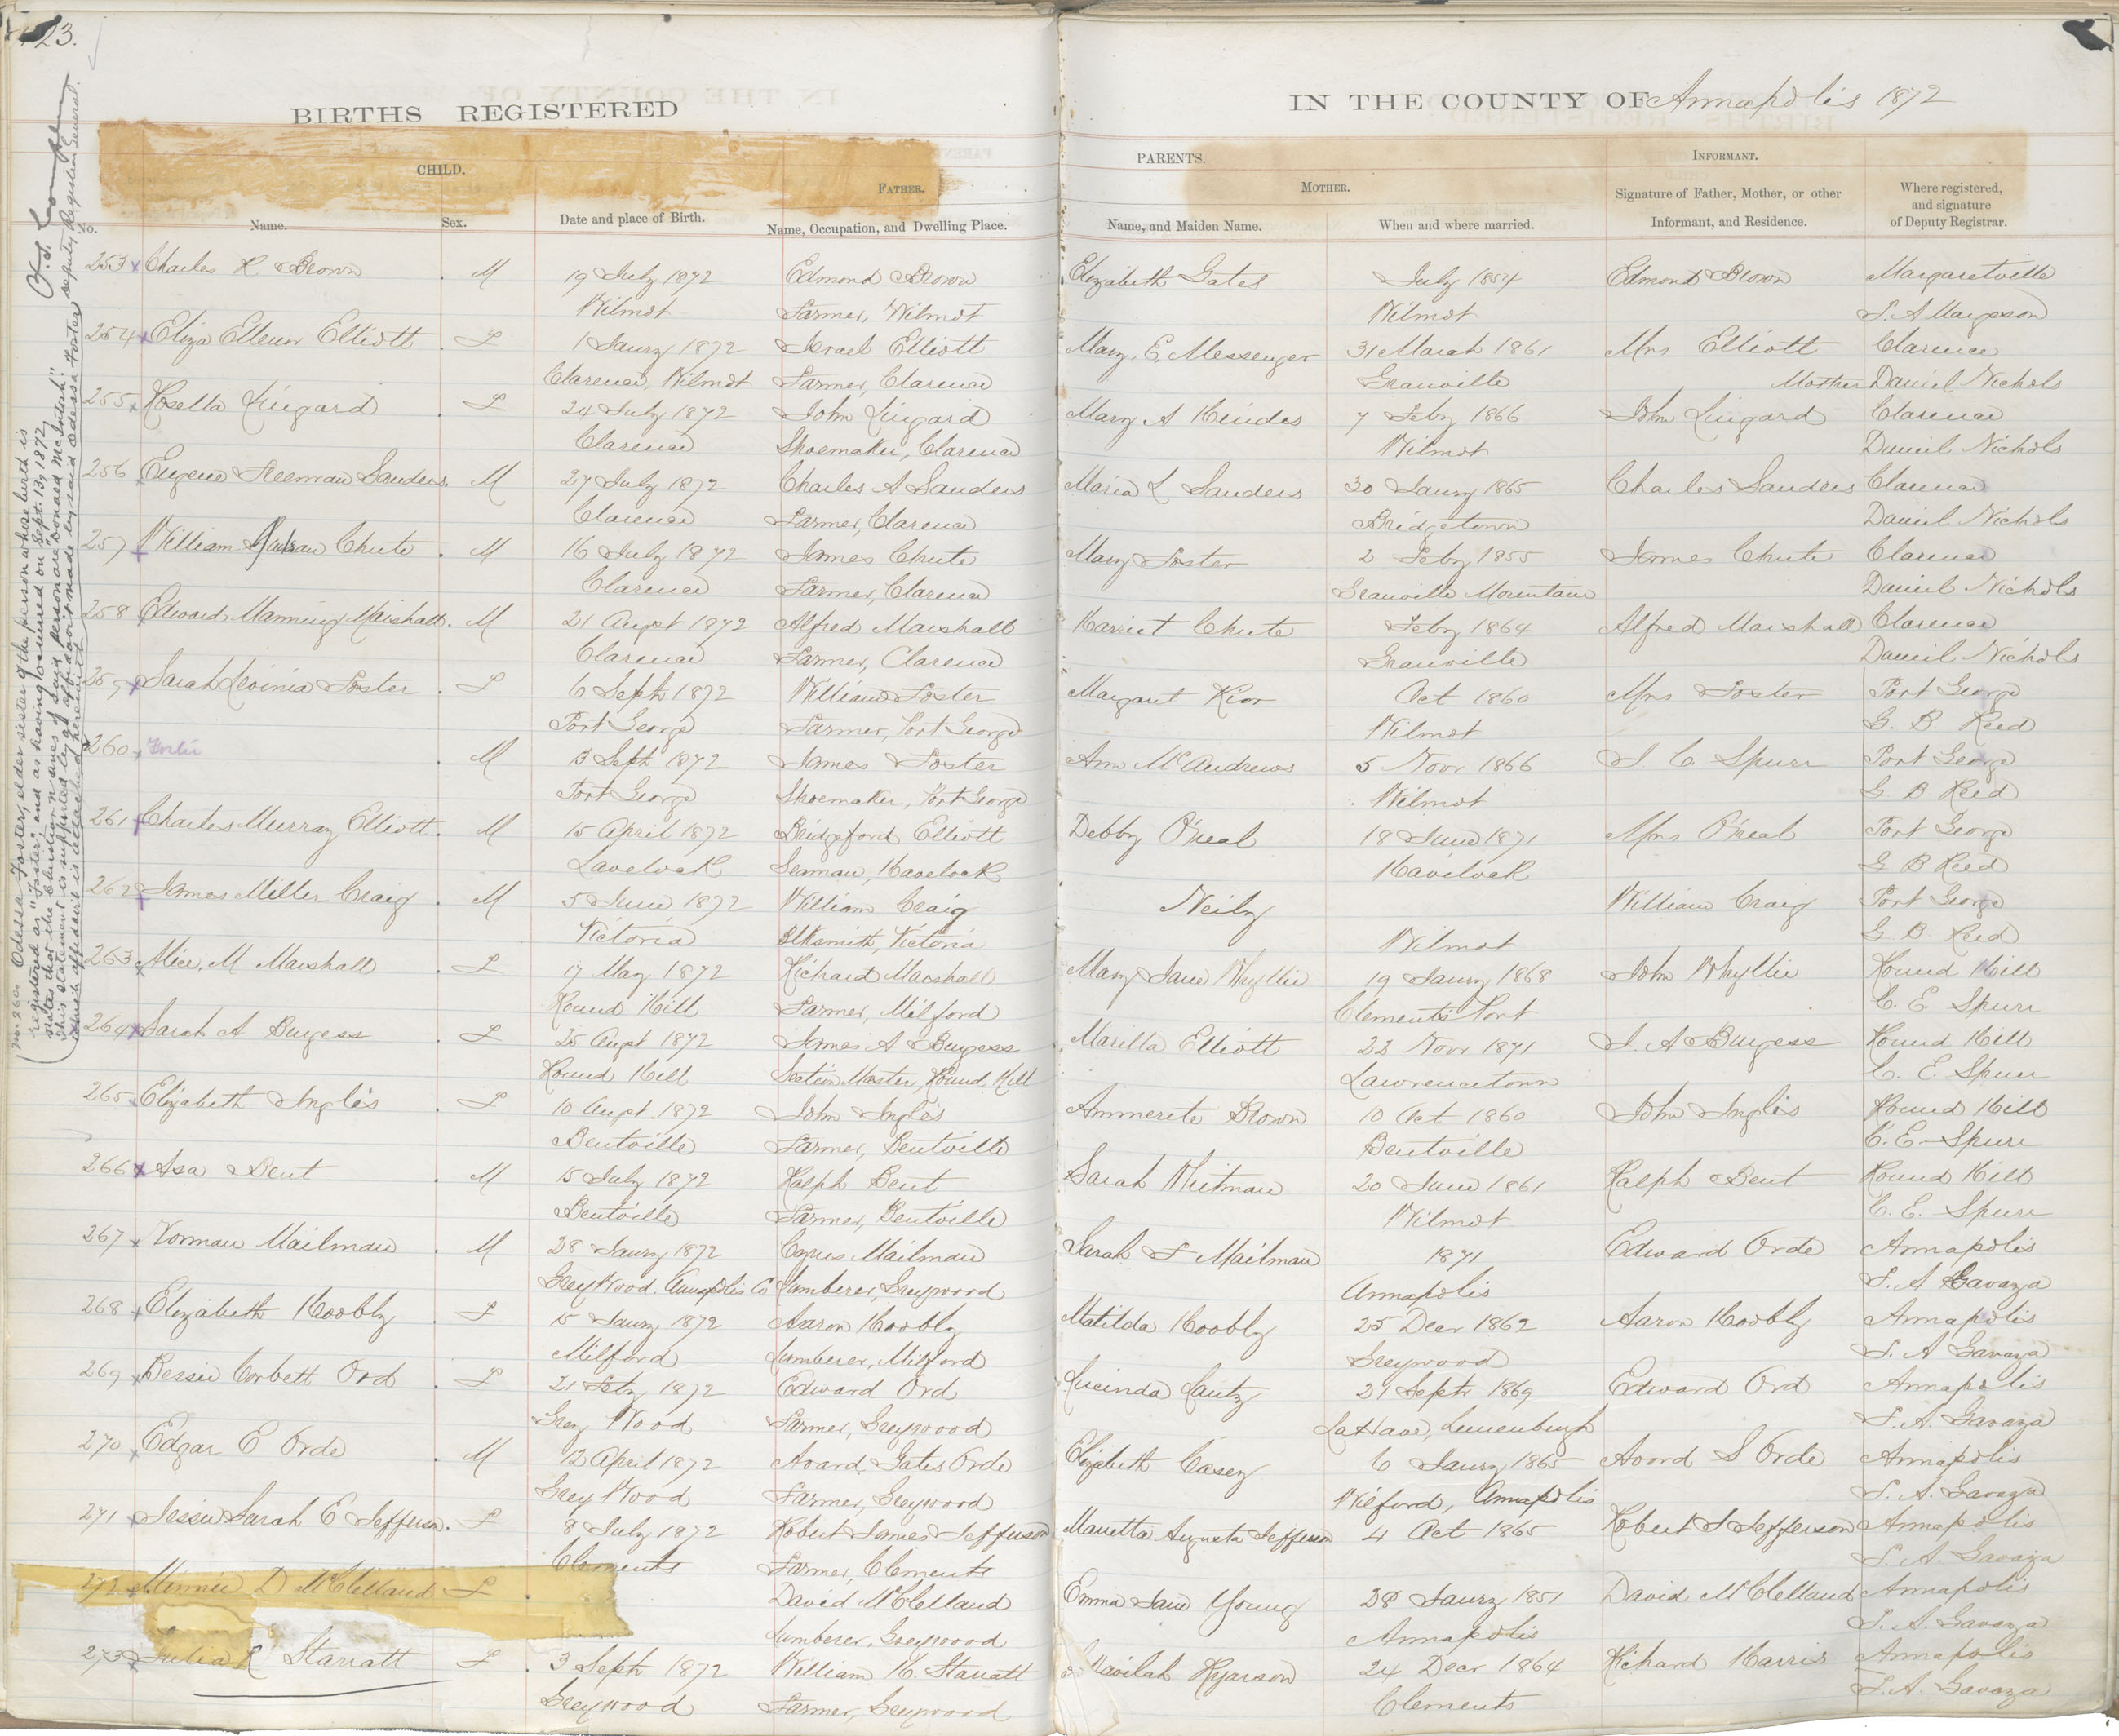 23.
BIRTHS REGISTERED
IN THE COUNTY OF Annapolis 1872
CHILD.
PARENTS.
INFORMANT.
FATHER.
MOTHER.
No.
Name.
Sex.
Date and place of Birth.
Name, Occupation, and Dwelling Place.
Name, and Maiden Name.
When and where married.
Signature of Father, Mother, or other
Informant, and Residence.
Where registered,
and signature
of Deputy Registrar.
253 Charles R Brown M 19 July 1872 Edmond Brown Elizabeth Gates July 1854 Edmond Brown Margaretville
Wilmot Farmer, Wilmot Wilmot S. A Margeson
254 Eliza Ellenor Elliott F 1 Jaury 1872 Israel Elliott Mary, E, Messenger 31 March 1861 Mrs Elliott Clarence
Clarence, Wilmot Farmer, Clarence Granville Mother Daniel Nichols
255 Rosella Lingard F 24 July 1872 John Lingard Mary A Hindes 7 Feby 1866 John Lingard Clarence
Clarence Shoemaker, Clarence Wilmot Daniel Nichols
256 Eugene Freeman Sanders M 27 July 1872 Charles A Sanders Maria L Sanders 30 Jaury 1865 Charles Sanders Clarence
Clarence Farmer, Clarence Bridgetown Daniel Nichols
257 William Chute M 16 July 1872 James Chute Mary Foster 2 Feby 1855 James Chute Clarence
Clarence Farmer, Clarence Granville Mountain Daniel Nichols
258 Edward Manning Marshall M 21 Augst 1872 Alfred Marshall Harriet Chute Feby 1864 Alfred Marshall Clarence
Clarence Farmer, Clarence Granville Daniel Nichols
259 Sarah Levinia Foster F 6 Sept 1872 William Foster Margaret Kior Oct 1860 Mrs Foster Port George
Port George Farmer, Port George Wilmot G. B. Reed
260 Foster M 13 Sept 1872 James Foster Ann McAndrews 5 Novr 1866 S C Spurr Port George
Port George Shoemaker, Port George Wilmot G. B Reed
261 Charles Murray Elliott M 15 April 1872 Bridgeford Elliott Debby O'neal 18 June 1871 Mrs O'neal Port George
Lavelock Seaman, Havelock Havelock G. B Reed
262 James Miller Craig M 5 June 1872 William Craig Neily William Craig Port George
Victoria Blksmith, Victoria Wilmot G. B Reed
263 Alice, M Marshall F 17 May 1872 Richard Marshall Mary Jane Whyllie 19 Jaury 1868 John Whyllie Round Hill
Round Hill Farmer, Milford Clements Port C. E. Spurr
264 Sarah A Burgess F 25 Augt 1872 James A Burgess Marilla Elliott 22 Novr 1871 J. A Burgess Round Hill
Round Hill Section Master, Round Hill Lawrencetown C. E Spurr
265 Elizabeth Inglis F 10 Augt 1872 John Inglis Ammerete Brown 10 Oct 1860 John Inglis Round Hill
Bentville Farmer, Bentville Bentville C. E. Spurr
266 Asa Bent M 15 July 1872 Ralph Bent Sarah Whitman 20 June 1861 Ralph Bent Round Hill
Bentville Farmer, Bentville Wilmot C. E. Spurr
267 Norman Mailman M 28 Jaury 1872 Cyrus Mailman Sarah F Mailman 1871 Edward Orde Annapolis
Grey Wood. Annapolis Co Lumberer, Greywood Annapolis S. A Gavaza
268 Elizabeth Hoobly F 15 Jaury 1872 Aaron Hoobly Matilda Hoobly 25 Decr 1862 Aaron Hoobly Annapolis
Milford Lumberer, Milford Greywood S. A Gavaza
269 Bessie Corbett Ord F 21 Feby 1872 Edward Ord Lucinda Lantz 21 Septr 1869 Edward Ord Annapolis
Grey Wood Farmer, Greywood LaHave, Lunenburgh S. A. Gavaza
270 Edgar E Orde M 12 April 1872 Avard Gates Orde Elizabeth Casey 6 Jaury 1865 Avord S Orde Annapolis
Grey Wood Farmer, Greywood Milford, Annapolis S. A. Gavaza
271 Jessie Sarah E Jefferson F 8 July 1872 Robert James Jefferson Marietta Augusta Jefferson 4 Oct 1865 Robert J Jefferson Annapolis
Clements Farmer, Clements S. A. Gavaza
272 Minnie D McClelland F David McClelland Emma Jane Young 28 Jaury 1851 David McClelland Annapolis
Lumberer, Greywood Annapolis S. A. Gavaza
273 Julia R Starratt F 3 Sept 1872 William H. Starratt Havilah Ryarson 24 Decr 1864 Richard Harris Annapolis
Greywood Farmer, Greywood Clements S. A. Gavaza
No. 260. Odessa Foster, elder sister of the person whose birth is
registered as "Foster", and as having occurred on Sept. 13, 1872,
states that the Christian names of said person are "Donald McIntosh."
This statement is supported by an affidavit made by said Odessa Foster
which affidavit is attached hereunto
Deputy Registrar General.